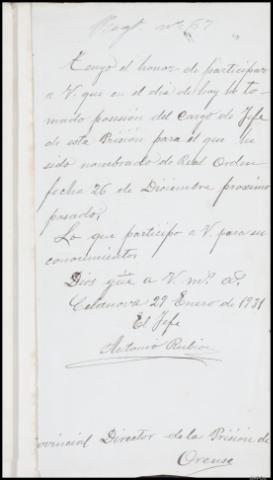 Regt. nº 67
Tengo el honor de participar
a V. que en el dia de hoy he to-
mado posesión del Cargo de Jefe
de esta Prisión para el que he
sido nombrado de Real Orden
fecha 26 de Diciembre proximo
pasado,
Lo que participo a V. para su
conocimiento
Dios gue a V. m.s a.s
Celanova 27 Enero de 1931
El Jefe
Antonio Rubio
ovincial Director de la Prisión de
Orense